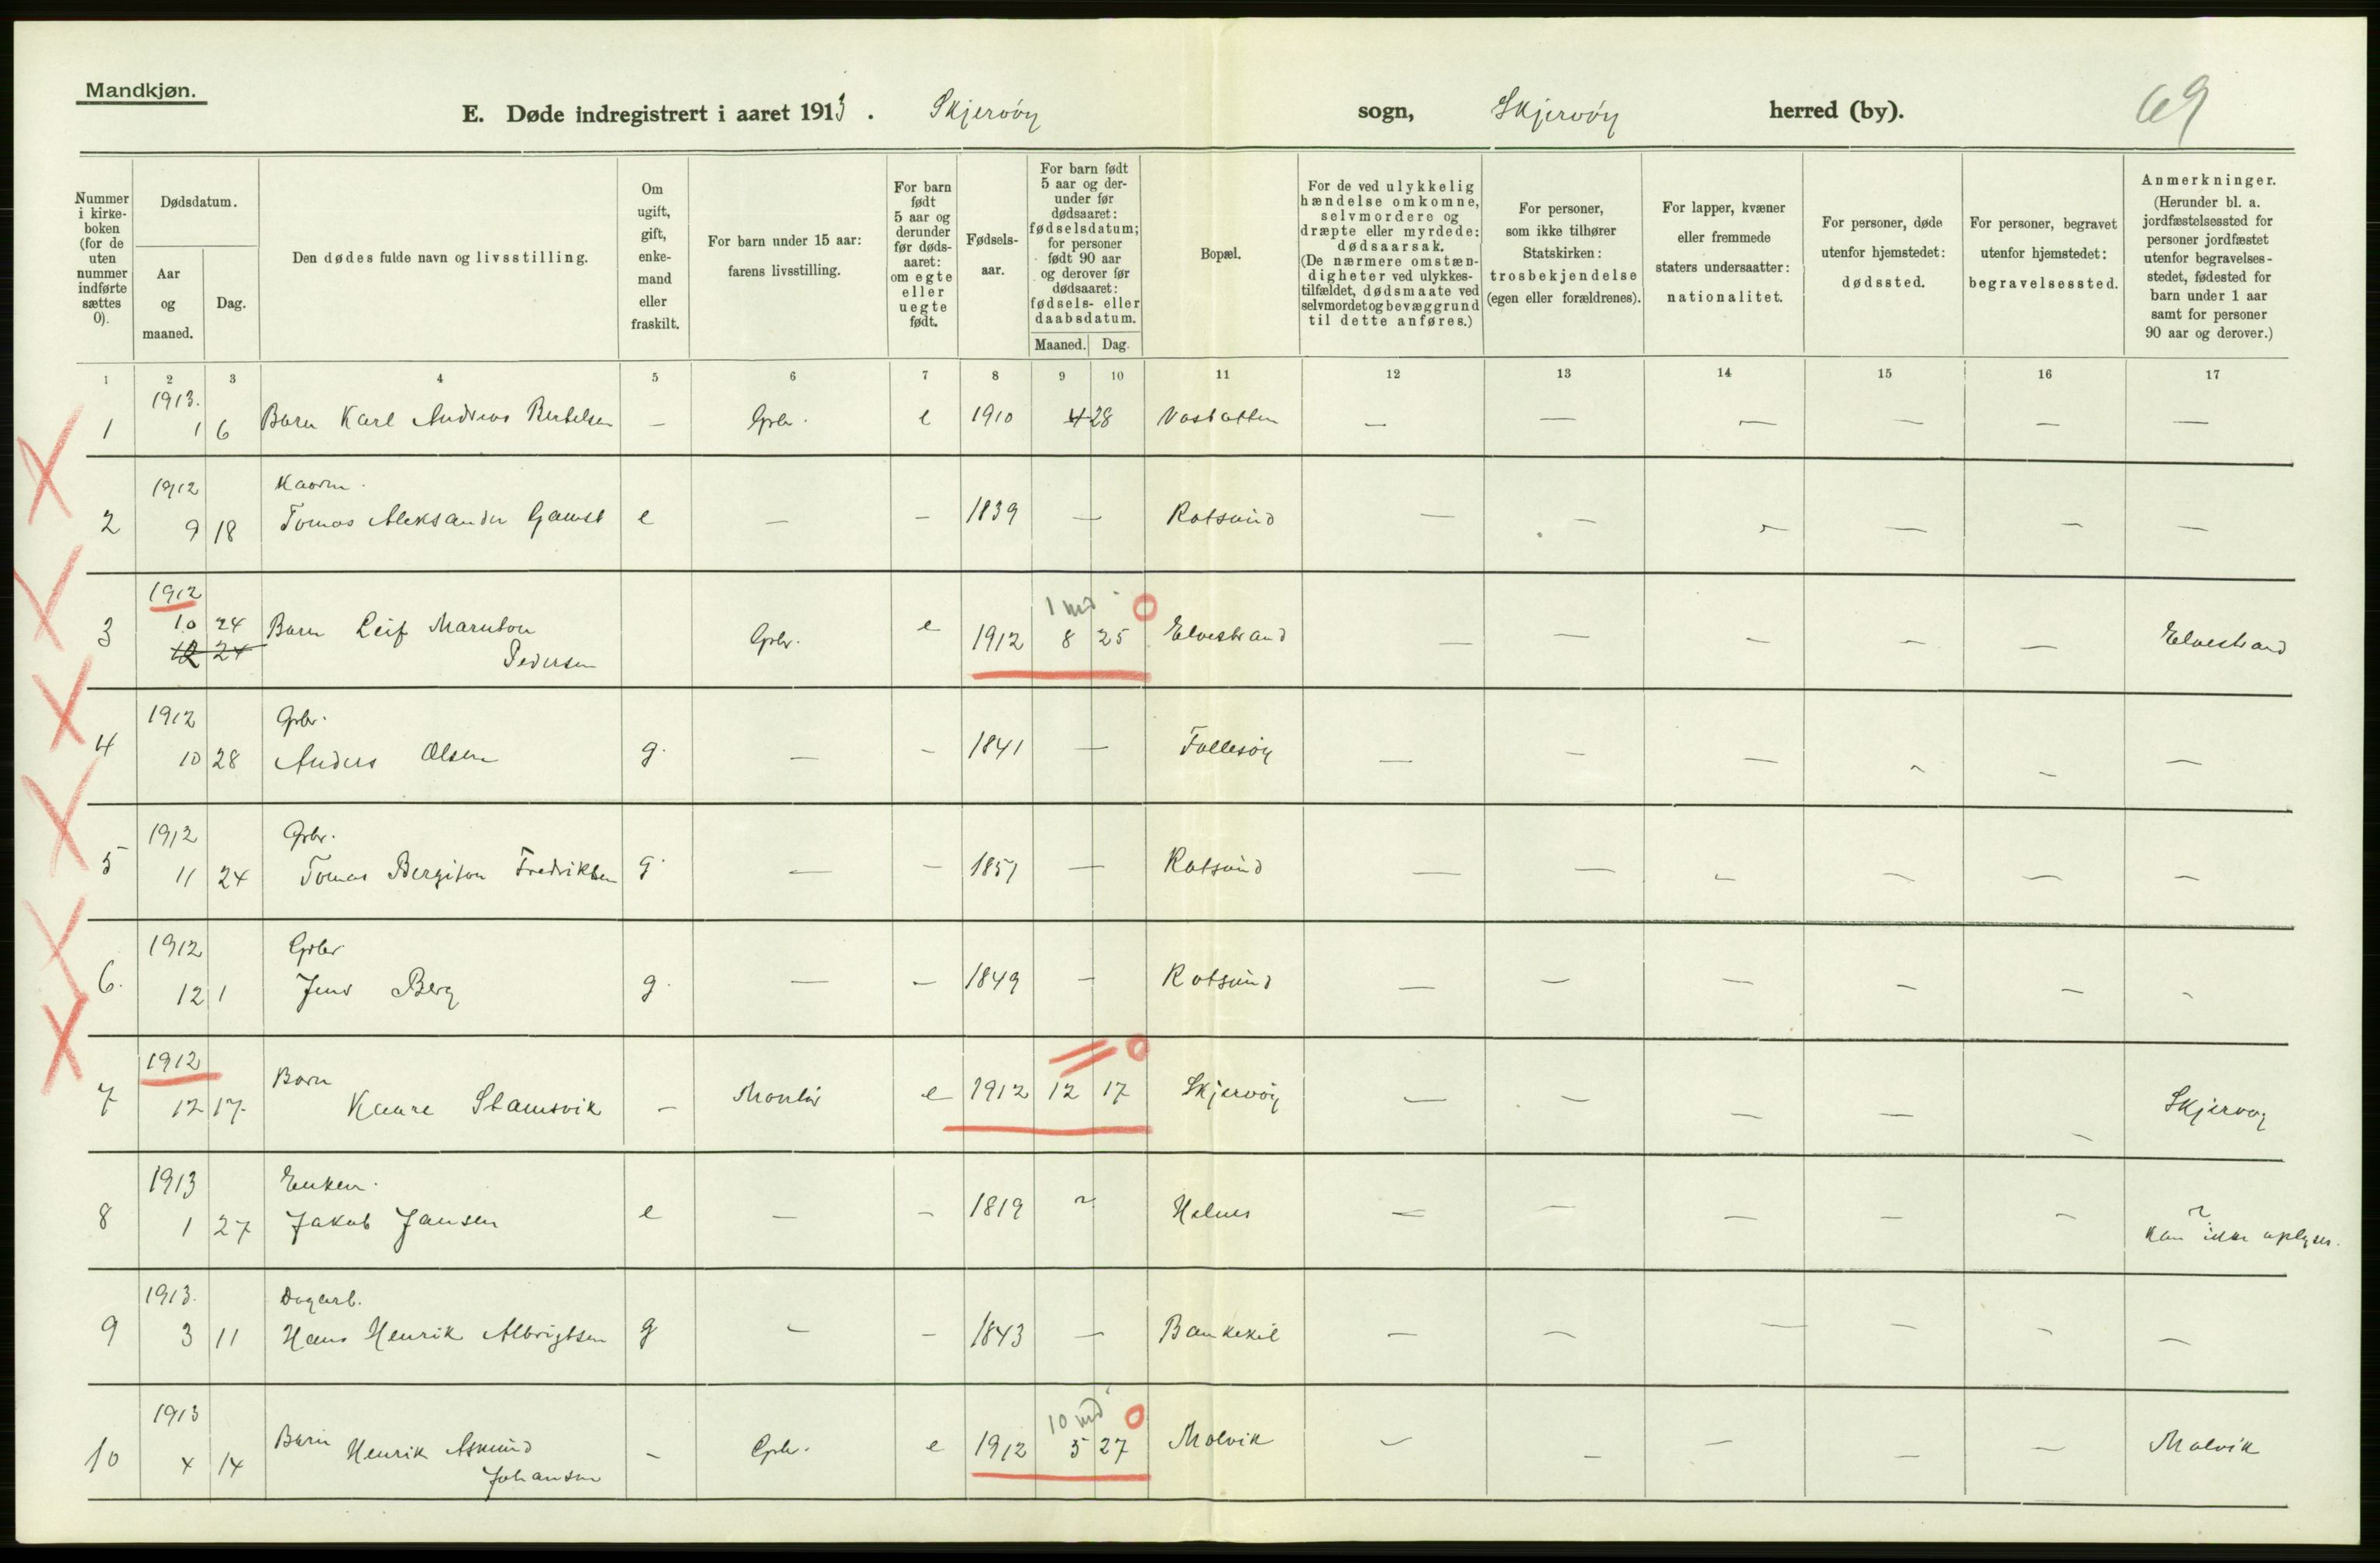 Mandkjøn.
E. Døde indregistrert i aaret 1913. Skjervöy sogn, Skjervöy herred (by). 69
Nummer i kirke-boken (for de uten nummer indførte sættes 0).
Dødsdatum.
Aar og maaned.
Dag.
Den dødes fulde navn og livsstilling.
Om ugift, gift, enke-mand eller fraskilt.
For barn under 15 aar: farens livsstilling.
For barn født 5 aar og derunder før døds-aaret: om egte eller uegte født.
Fødsels-aar.
For barn født 5 aar og der-under før dødsaaret: fødselsdatum; for personer født 90 aar og derover før dødsaaret: fødsels- eller daabsdatum.
Maaned. Dag.
Bopæl.
For de ved ulykkelig hændelse omkomne, selvmordere og dræpte eller myrdede: dødsaarsak. (De nærmere omstæn-digheter ved ulykkes-tilfældet, dødsmaate ved selvmordet og bevæggrund til dette anføres.)
For personer, som ikke tilhører Statskirken: trosbekjendelse (egen eller forældrenes).
For lapper, kvæner eller fremmede staters undersaatter: nationalitet.
For personer, døde utenfor hjemstedet: dødssted.
For personer, begravet utenfor hjemstedet: begravelsessted.
Anmerkninger. (Herunder bl. a. jordfæstelsessted for personer jordfæstet utenfor begravelses-stedet, fødested for barn under 1 aar samt for personer 90 aar og derover.)
1 2 3 4 5 6 7 8 9 10 11 12 13 14 15 16 17
1913.
1 1 6 Barn Karl Andreas Bertelsen — Gbr. e 1910 4 28 — — — — — —
1912
2 9 18 Tomas Aleksander Gamst e — — 1839 — Rotsund — — — — — —
1912 1 md 0
3 10 24 Barn Leif Marnton Gbr. e 1912 8 25 Elvestrand — — — — — Elvestrand
12 24 Pedersen
1912 Gbr.
4 10 28 Anders Olsen g. — — 1841 — Follesöy — — — — — —
1912 Gbr.
5 11 24 Tomas Bergiton Fredriksen g. — — 1857 — Rotsund — — — — — —
1912 Gbr
6. 12 1 Jens Berg g. — — 1849 — Rotsund — — — — — —
1912 0
Barn
7 12 17 Kaare Stamsvik — Montör e 1912 12 17 Skjervöy — — — — — Skjervöy
1913 Enkem.
8 1 27 Jakob Jansen e — — 1819 ~ — — — — — Kan ikke oplyses.
1913. Dagarb.
9 3 11 Hans Henrik Albrigtsen g — — 1843 — Bankekil — — — — — —
1913 10 md 0
10 4 14 Barn Henrik Asmund — Gbr. e 1912 5 27 Molvik — — — — — Molvik
Johansen